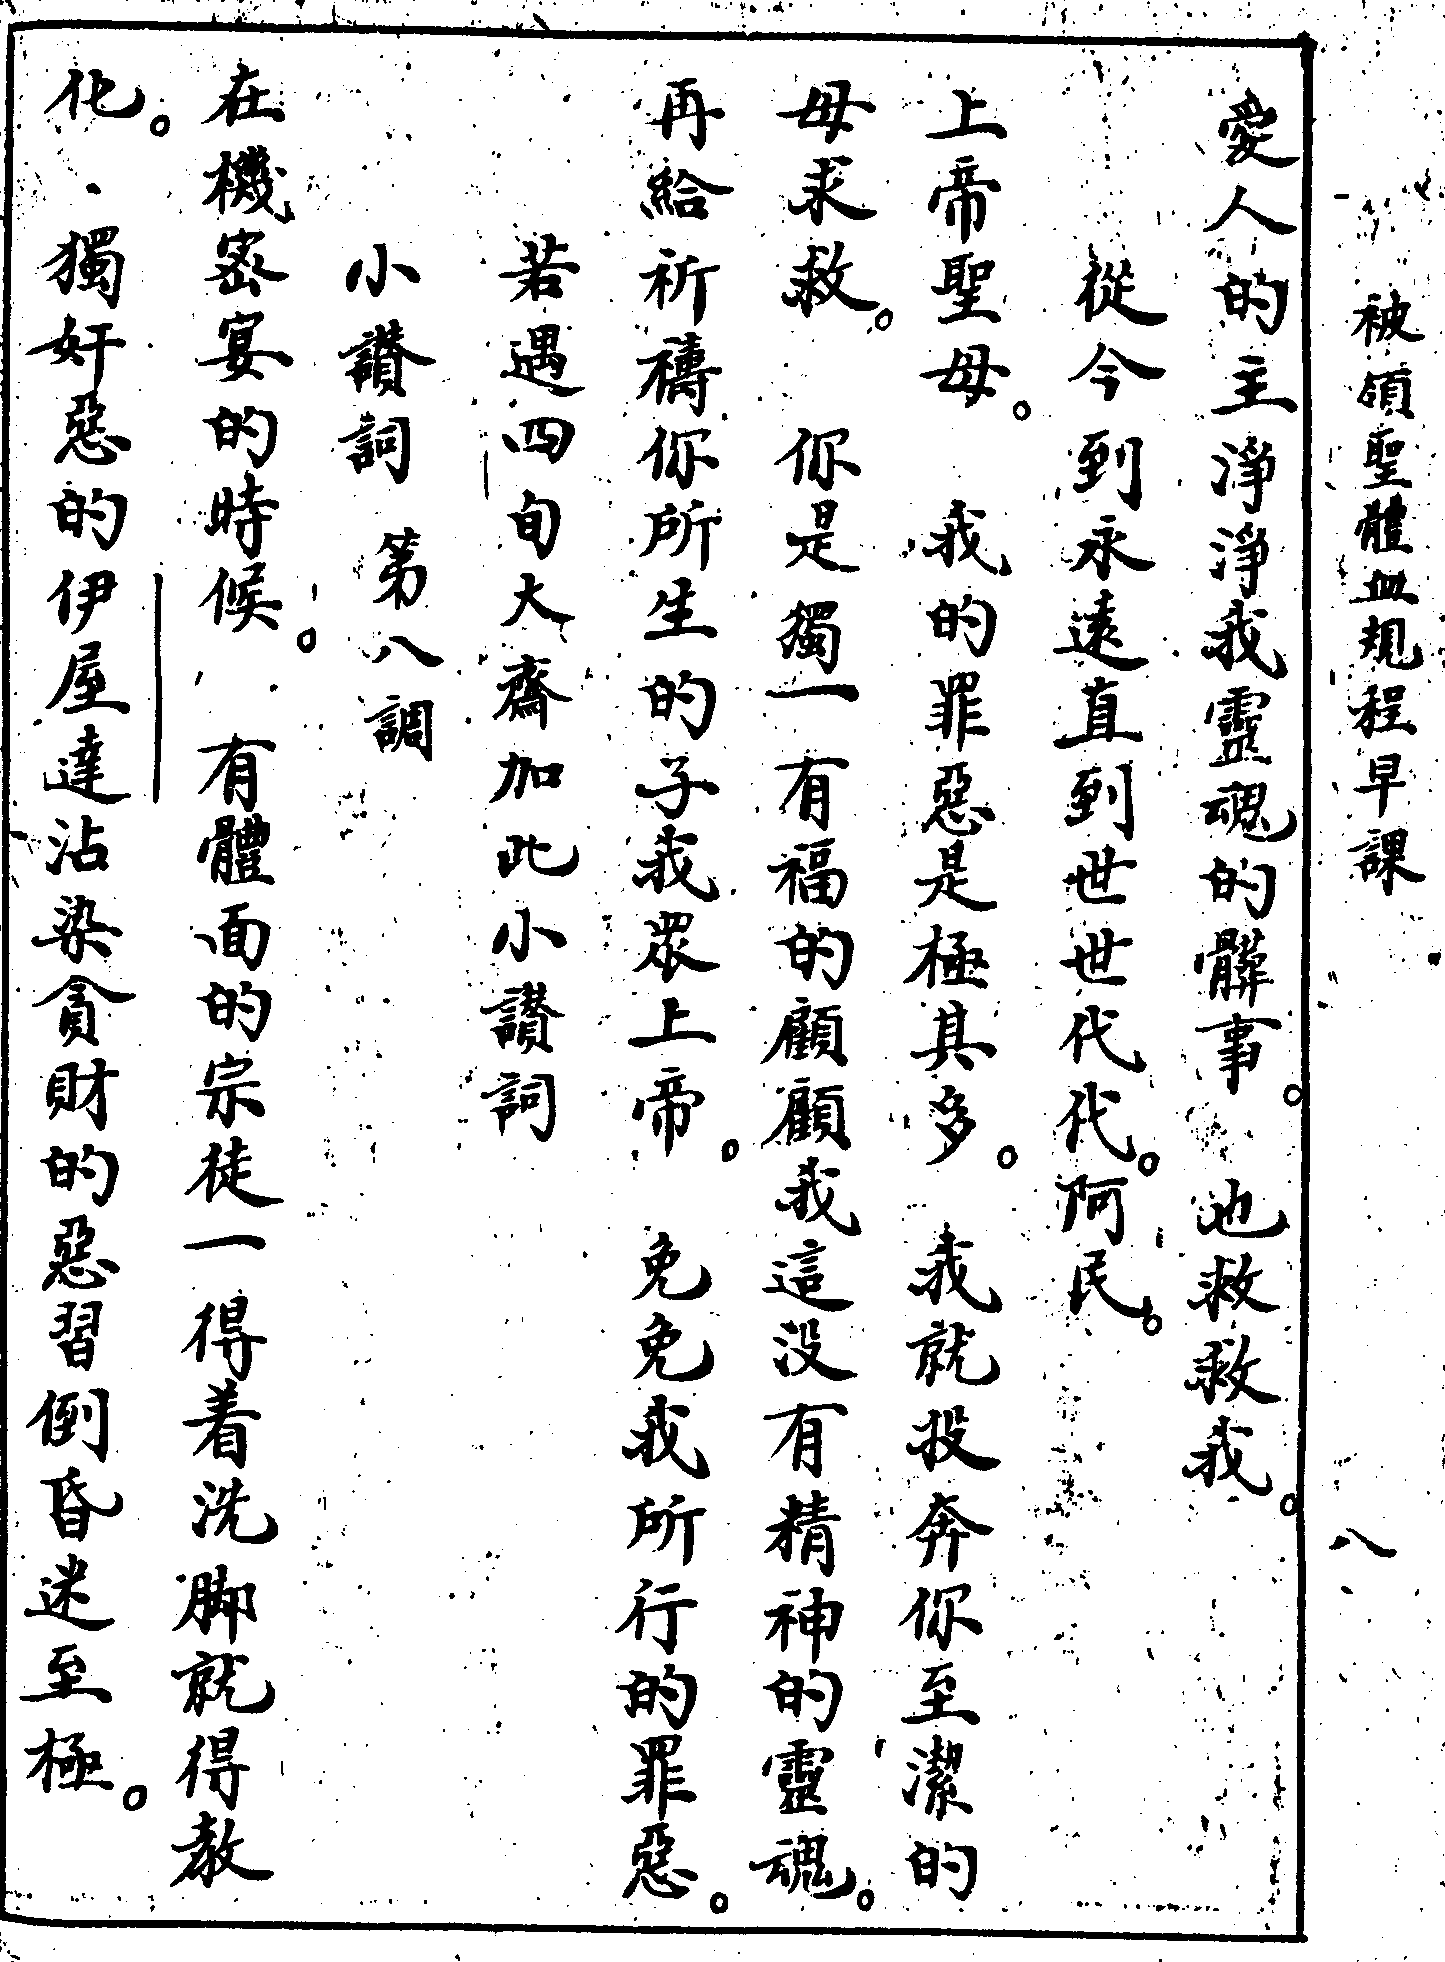 被領聖體血規程早課 八
愛人的主淨淨我靈魂的髒事。也救救我。
從今到永遠直到世世代代。阿民。
上帝聖母。我的罪惡是極其多。我就投奔你至潔的
母求救。你是獨一有福的顧顧我這没有精神的靈魂。
再給祈禱你所生的子我眾上帝。免免我所行的罪惡。
若遇四旬大齋加此小讚詞
小讚詞 第八調
在機密宴的時候。有體面的宗徒一得着洗脚就得教
化。獨奸惡的伊屋達沾染貪財的惡習倒昏迷至極。